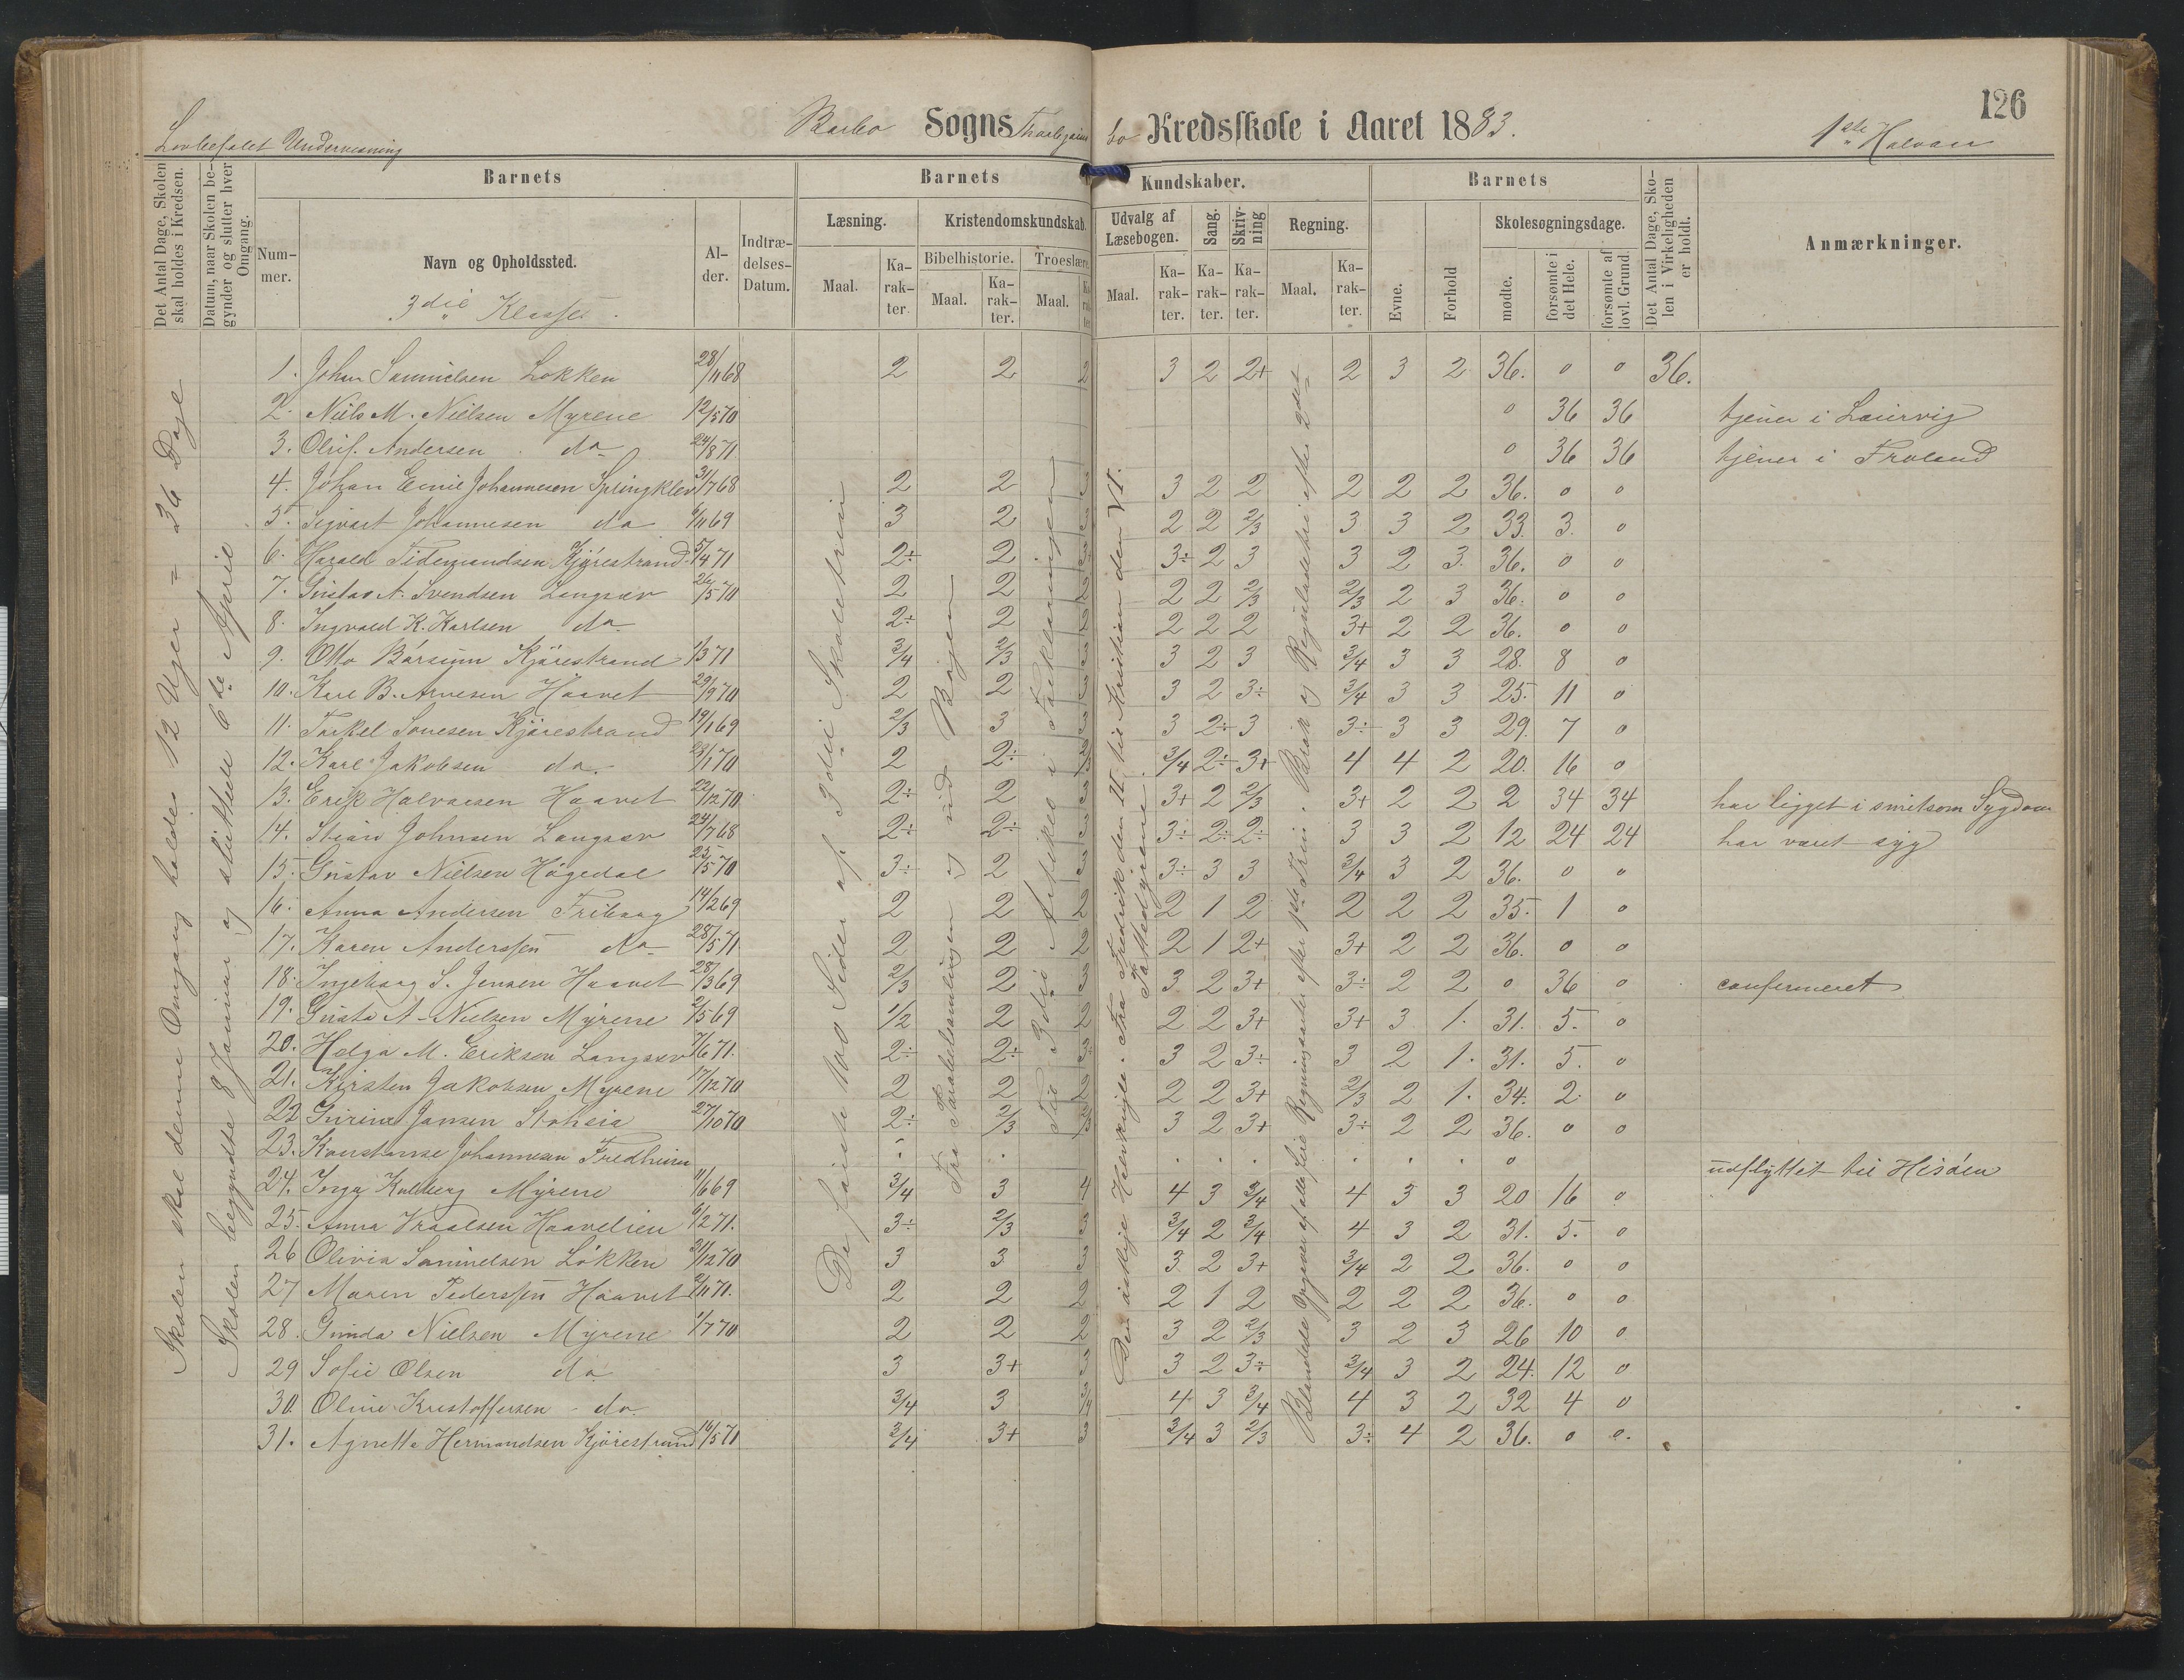 126
Lovbefalet Undervisning
Barbo Sogns Kredsskole i Aaret 1883.
1ste Halvaar
Det Antal Dage, Skolen skal holdes i Kredsen.
Datum, naar Skolen begynder og slutter hver Omgang.
Barnets
Barnets
Kundskaber.
Barnets
Det Antal Dage, Skolen i Virkeligheden er holdt.
Anmærkninger.
Nummer.
Navn og Opholdssted.
Alder.
Indtrædelses-Datum.
Læsning.
Kristendomskundskab.
Udvalg af Læsebogen.
Sang.
Skrivning
Regning.
Evne.
Forhold
Skolesøgningsdage.
Bibelhistorie.
Troeslære.
Maal.
Karakter.
Maal.
Karakter.
Maal.
Maal.
Karakter.
Karakter.
Karakter.
Maal.
Karakter.
mødte.
forsømte i det Hele.
forsømte af lovl. Grund.
3die Klasse.
Skolen skal denne Omgang holdes 12 Uger = 36 Dage
Skolen begyndte 8 Januar og sluttede 6de April
De første 100 Sider af 3die Skoletrin
Fra Parabelsamlingen og ud Bogen
Til 3die Artikel i Forklaringen
Fra Fredrik den II til Kristian den VI. Pattedyrene.
Blandede Opgaver af alle fire Regningsarter efter 1ste Trin. Brøk og Reguladetri efter 2det
1. Johan Samuelsen Løkken 28/11 68 2 2 2 3 2 2+ 2 3 2 36. 0 0 36.
2. Niels M. Nielsen Myrene 12/5 70 0 36 36 tjener i Laurvig
3. Andersen do 24/8 71 0 36 36 tjener i Froland
4. Johan Emil Johannesen Springklev 31/7 68 2 2 3 2 2 2 2 2 36. 0 0
5. Sigvart Johannesen do /11 69 3 2 2 2 2/3 3 3 2 33. 3. 0
6. Harald Tidemandsen Kjørestrand 5/4 71 2÷ 2 3÷ 2 3 3 2 3. 36. 0 0
7. Gustav A. Svendsen Langsæv 26/5 70 2 2 2 2 2/3 2/3 2 3 36. 0 0
8. Ingvald K. Karlsen do 2÷ 2 2 2 2 3+ 2 2 36. 0 0
9. Otto Børsum Kjørestrand 1/3 71 3/4 2/3 3 2 3 3/4 3 3 28. 8 0
10. Karl B. Arvesen Haavet 29/9 70 2 2 3 2 3÷ 3/4 3 3 25. 11 0
11. Torkel Kjørestrand 19/1 69 2/3 3 3 2÷ 3 3÷ 3 3 29. 7 0
12. Karl Jakobsen do. 23/1 70 2 2÷ 3/4 2÷ 3+ 4 4 2 20. 16 0
13. Erik Halvorsen Haavet 22/12 70 2÷ 2 3+ 2 2/3 3+ 2 2 2 34 34 har ligget i smitsom Sygdom
14. Johnsen Langsæv 24/7 68 2÷ 2÷ 3÷ 2÷ 2÷ 3 3 2 12 24 24 har været syg
15. Gustav Nielsen Høgedal 25/5 70 3÷ 2 3 3÷ 3 3 3/4 3 2 36. 0 0
16. Anna Andersen Friborg 14/2 69 2 2 2 2 1 2 2 2 2 35. 1 0
17. Karen Anderssen do 28/5 71 2 2 2 2 1 2+ 3+ 2 2 36. 0 0
18. Ingeborg S. Jensen Haavet 28/3 69 2/3 2 3 3 2 3+ 3÷ 2 2 0 36 0 confirmeret
19. Gusta A. Nielsen Myrene 2/5 69 1/2 2 2 2 2 3+ 3+ 3 1. 31. 5. 0
20. Helga M. Eriksen Langsæv 7/6 71. 2÷ 2÷ 3 2 3÷ 3 2 1. 31. 5. 0
21. Kirsten Jakobsen Myrene 17/12 70 2 2 2 2 2 3+ 2/3 2 1. 34. 2. 0
22 Jansen Stoheia 27/10 70 2÷ 2/3 3 2 3+ 3÷ 2 2 36. 0 0
23. Konstanse Johannesen Fredheim 0 udflyttet til Hisøen
24. Inga Kulberg Myrene 11/6 69 3/4 3 4 4 3 3/4 4 3 3 20 16 0
25. Anna Vraalsen Haavelien 6/2 71. 3÷ 2/3 3 3/4 2 3/4 4 3 2 31. 5. 0
26 Olivia Samuelsen Løkken 31/12 70 3 3 3 3 2 3+ 3/4 2 2 36. 0 0
27 Maren Pederssen Haavet /11 71. 2 2 2 2 1 2 2 2 2 36. 0 0
28. Gunda Nielsen Myrene 1/7 70 2 2 2 3 2 2/3 3 2 3 26 10 0
29 Sofie Olsen do 3 3+ 3 3 2 3÷ 3/4 3 2 24. 12 0
30. Oline Kristoffersen - do. 3/4 3 3/4 4 3 3/4 4 3 2 32 4 0
31. Agnette Hermandsen Kjørestrand 14/5 71 3/4 3+ 3 3/4 3 2/3 3÷ 4 2 36. 0 0.